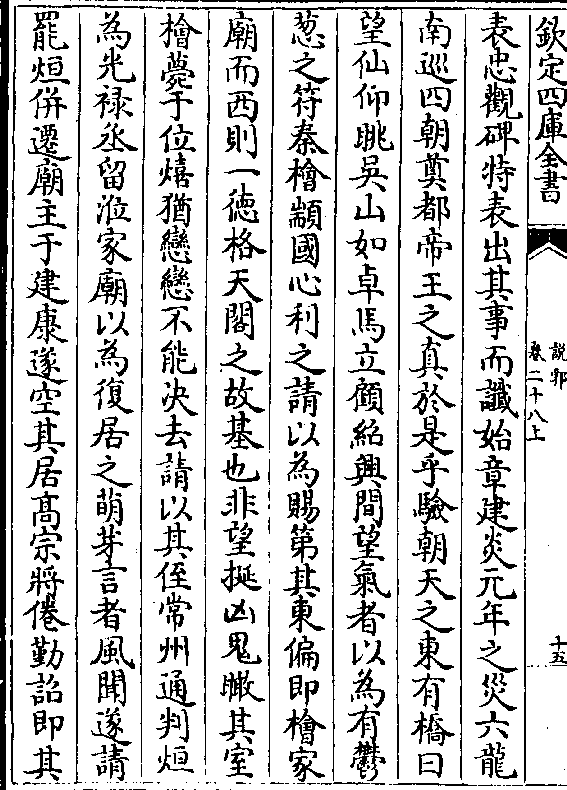 欽定四庫全書
說郛
卷二十八上
十五
表忠觀碑特表出其事而讖始章建炎元年之災六龍
南巡四朝奠都帝王之真於是乎驗朝天之東有橋曰
望仙仰眺吳山如卓馬立顧紹興間望氣者以為有鬱
葱之符秦檜顓國心利之請以為賜第其東偏即檜家
廟而西則一德格天閣之故基也非望挻凶鬼瞰其室
檜薨于位熺猶戀戀不能决去請以其侄常州通判烜
為光禄丞留涖家廟以為復居之萌芽言者風聞遂請
罷烜併遷廟主于建康遂空其居髙宗將倦勤詔即其